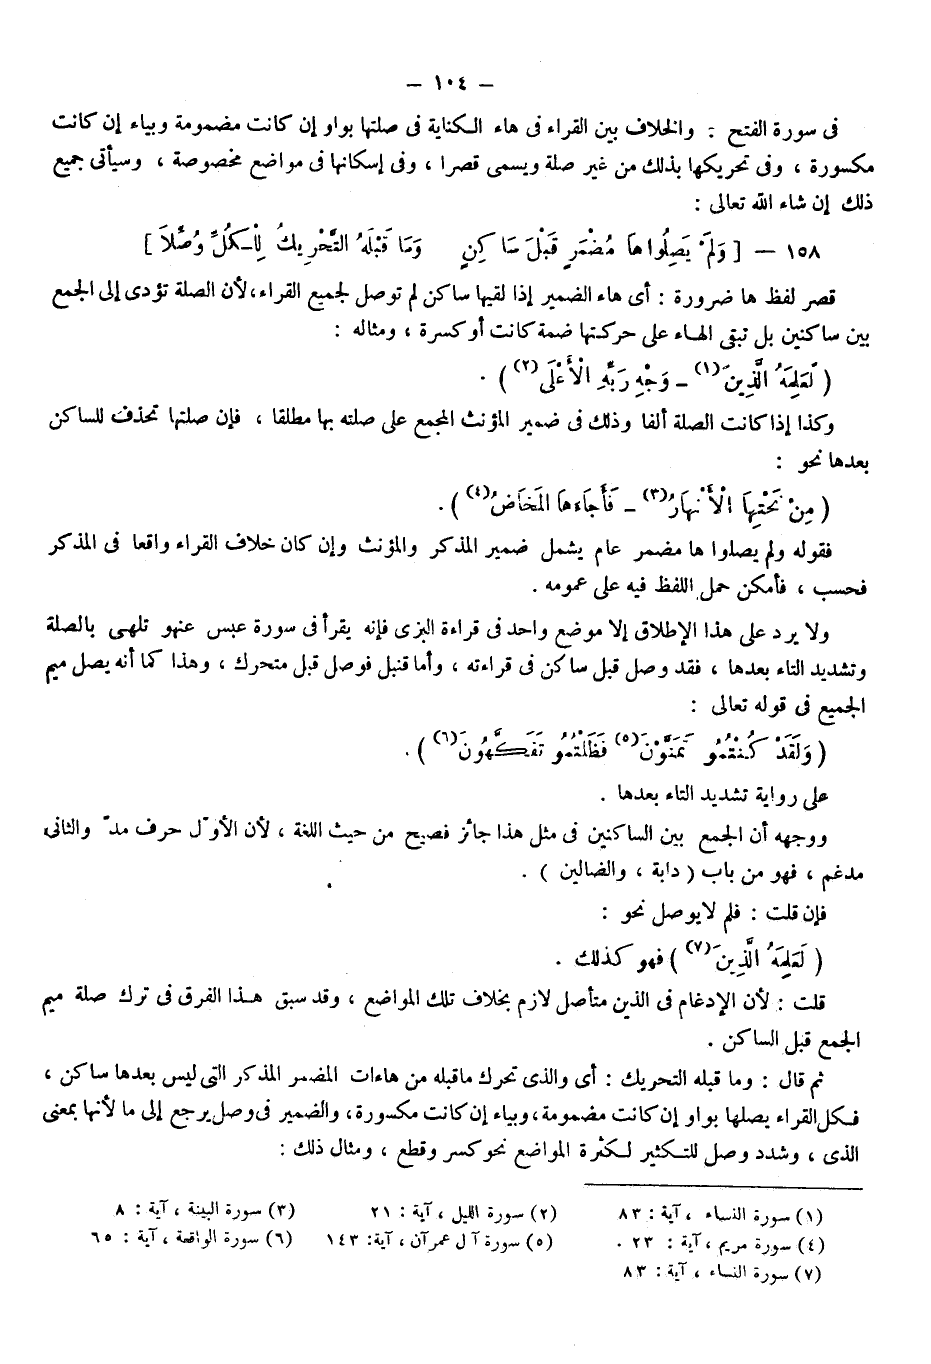 – ١٠٤ –
فى سورة الفتح : والخلاف بين القراء فى هاء الكناية فى صلتها بواو إن كانت مضمومة وبياء إن كانت
مكسورة ، وفى تحريكها بذلك من غير صلة ويسمى قصرا ، وفى إسكانها فى مواضع مخصوصة ، وسيأتى جميع
ذلك إن شاء الله تعالى :
١٥٨ – [ وَلَمْ يَصِلُوا هَا مُضْمَرٍ قَبْلَ سَاكِنٍ وَمَا قَبْلَهُ التَّحْرِيكُ لِلْكُلِّ وُصِّلَا ]
قصر لفظ ها ضرورة : أى هاء الضمير إذا لقيها ساكن لم توصل لجميع القراء ، لأن الصلة تؤدى إلى الجمع
بين ساكنين بل تبقى الهاء على حركتها ضمة كانت أو كسرة ، ومثاله :
( لَعَلِمَهُ الَّذِينَ (١) – وَجْهِ رَبِّهِ الْأَعْلَى (٢) ) .
وكذا إذا كانت الصلة ألفا وذلك فى ضمير المؤنث المجمع على صلته بها مطلقا ، فإن صلتها تحذف للساكن
بعدها نحو :
( مِنْ تَحْتِهَا الْأَنْهَارُ (٣) – فَأَجَاءَهَا الْمَخَاضُ (٤) ) .
فقوله ولم يصلوا ها مضمر عام يشمل ضمير المذكر والمؤنث وإن كان خلاف القراء واقعا فى المذكر
فحسب ، فأمكن حمل اللفظ فيه على عمومه .
ولا يرد على هذا الإطلاق إلا موضع واحد فى قراءة البزى فإنه يقرأ فى سورة عبس عنهو تلهى بالصلة
وتشديد التاء بعدها ، فقد وصل قبل ساكن فى قراءته ، وأما قنبل فوصل قبل متحرك ، وهذا كما أنه يصل ميم
الجميع فى قوله تعالى :
( وَلَقَدْ كُنْتُمُو تَمَنَّوْنَ (٥) فَظَلْتُمُو تَفَكَّهُونَ (٦) ) .
على رواية تشديد التاء بعدها .
ووجهه أن الجمع بين الساكنين فى مثل هذا جائز فصيح من حيث اللغة ، لأن الأوّل حرف مدّ والثانى
مدغم ، فهو من باب ( دابة ، والضالين ) .
فإن قلت : فلم لا يوصل نحو :
( لَعَلِمَهُ الَّذِينَ (٧) ) فهو كذلك .
قلت : لأن الإدغام فى الذين متأصل لازم بخلاف تلك المواضع ، وقد سبق هذا الفرق فى ترك صلة ميم
الجمع قبل الساكن .
ثم قال : وما قبله التحريك : أى والذى تحرك ماقبله من هاءات المضمر المذكر التى ليس بعدها ساكن ،
فكل القراء يصلها بواو إن كانت مضمومة ، وبياء إن كانت مكسورة ، والضمير فى وصل يرجع إلى ما لأنها بمعنى
الذى ، وشدد وصل للتكثير لكثرة المواضع نحو كسر وقطع ، ومثال ذلك :
(١) سورة النساء ، آية : ٨٣ (٢) سورة الليل ، آية : ٢١ (٣) سورة البينة ، آية : ٨
(٤) سورة مريم ، آية : ٢٣ . (٥) سورة آل عمرآن ، آية: ١٤٣ (٦) سورة الواقعة ، آية : ٦٥
(٧) سورة النساء ، آية : ٨٣